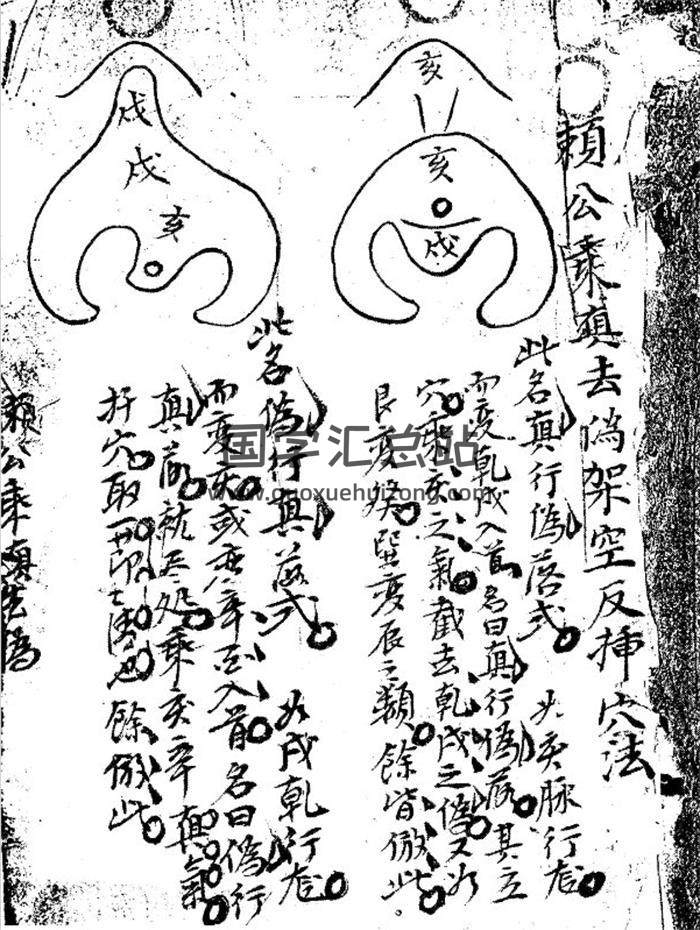 賴公乘眞去偽架空反挿穴法
亥
亥
戌
此名眞行偽落式 如亥脉行龙
而变乾戌入首名曰眞行偽落其立
穴乘亥之氣截去乾戌之偽又如
艮变癸巽变辰之類餘皆倣此
戌
戌
亥
此名偽行真落式 如戌乾行龙
而变亥或庚辛酉入首名曰偽行
真落就尽处乘亥辛真氣
扦穴取 餘倣此
賴公乘真去偽
国学汇总站
www.guoxuehuizong.com